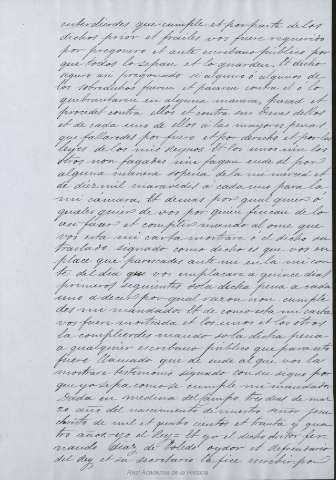 entendierdes que cumple et por parte de los
dichos prior et frailes vos fuere requerido
por pregonero et ante escribano público por
que todos lo sepan et lo guarden. Et dicho
seguro así pregonado si alguno o algunos de
los sobredichos fueren et pasaren contra él o lo
quebrantaren en alguna manera, pasad et
proceded contra ellos et contra sus bienes de ellos
et de cada uno de ellos a las mayores penas
que fallaredes por fuero et por derecho et por las
leyes de los mis regnos. Et los unos nin los
otros non fagades nin fagan ende al por
alguna manera so pena de la mi merced et
de diez mil maravedís a cada uno para la
mi cámara. Et demas por qual quier o
quales quier de vos por quien fincan de lo
así facer et complir mando al ome que
vos esta mi carta mostrare o el dicho su
traslado signado como dicho es que vos em
place que parescades ante mi en la mi cor
te del día que vos emplazare a quince días
primeros siguientes so la dicha pena a cada
uno a decir por qual razon non cumpli
des mi mandado. Et de como esta mi carta
vos fuere mostrada et los unos et los otros
la complierdes mando so la dicha pena
a qualquier escribano publico que para esto
fuere llamado que dé ende al que vos la
mostrare testimonio signado con su signo por
que yo sepa como se cumple mi mandado
Dada en medina del Campo tres dias de mar
zo año del nacimiento de nuestro señor jesu
christo de mil et quatro cientos et treinta y qua
tro años = yo el Rey = Et yo el dicho doctor fer
nando Díaz de Toledo oydor et refrendario
del Rey et su secretario la fice escribir por
Real Academia de la Historia